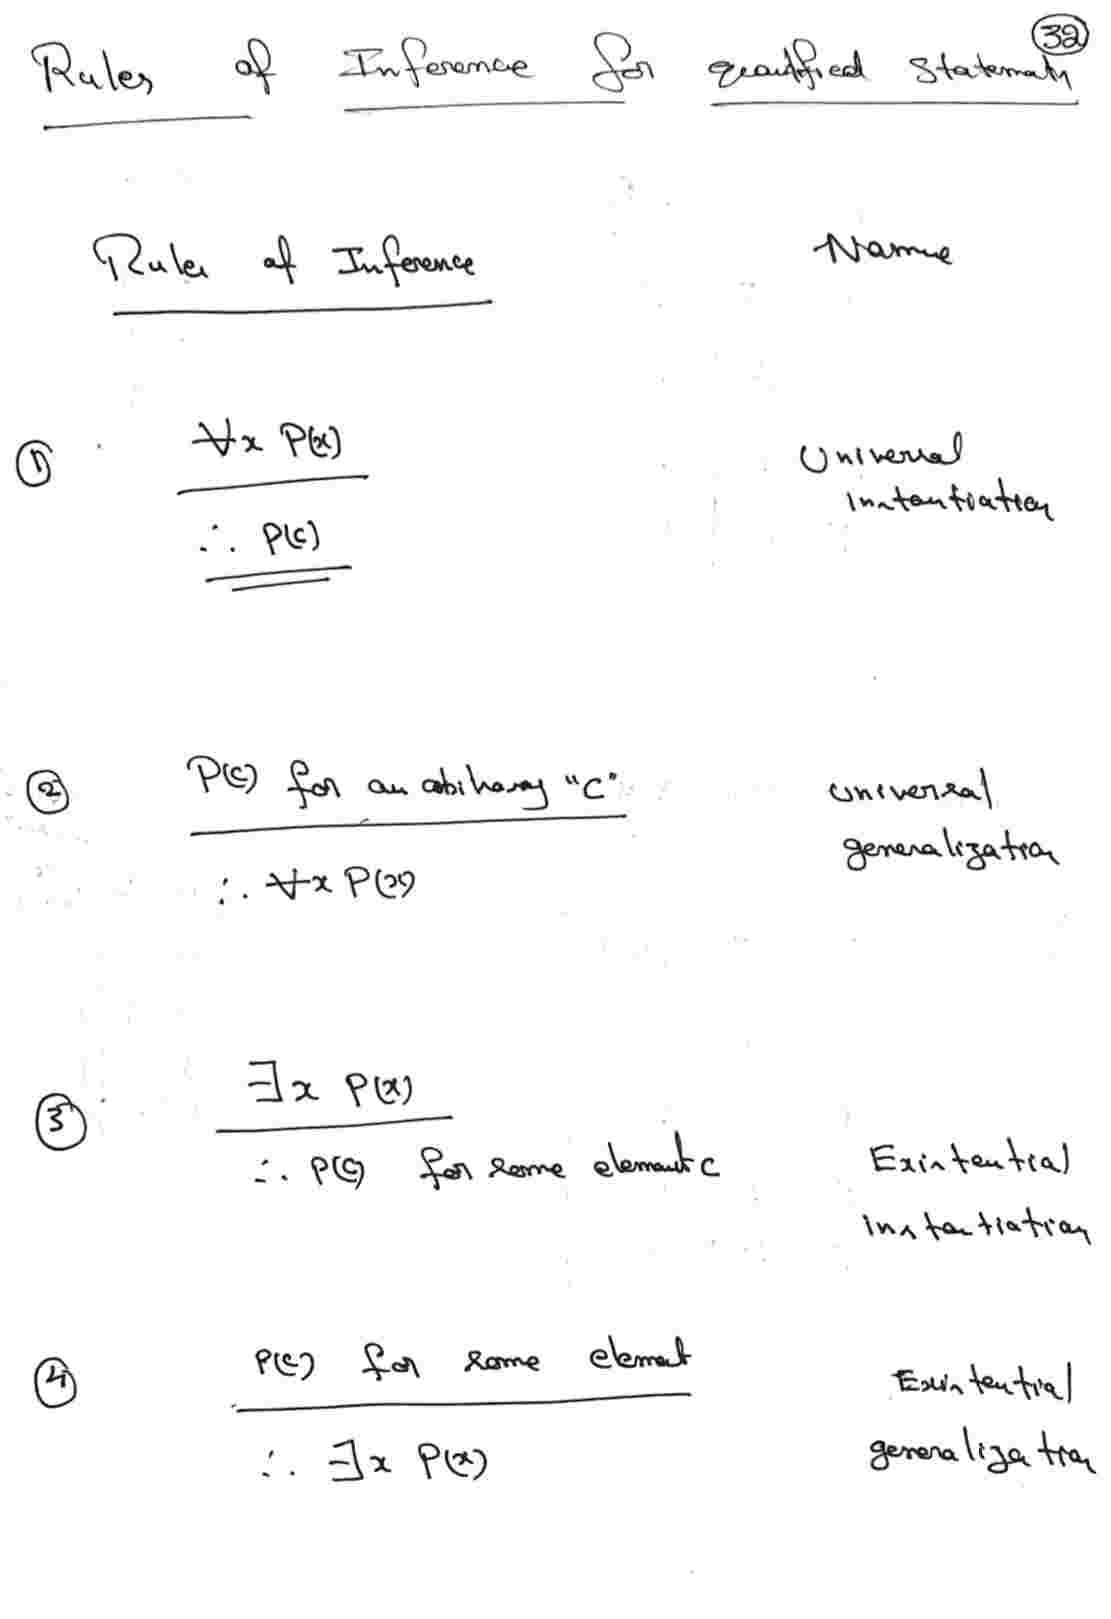 32
Rules of Inference for quantified statements
Rules of Inference Name
① ∀x P(x) Universal
instantiation
∴ P(c)
② P(c) for an arbitrary "C" universal
generalization
∴ ∀x P(x)
③ ∃x P(x)
∴ P(c) for some element c Existential
instantiation
④ P(c) for some element Existential
generalization
∴ ∃x P(x)